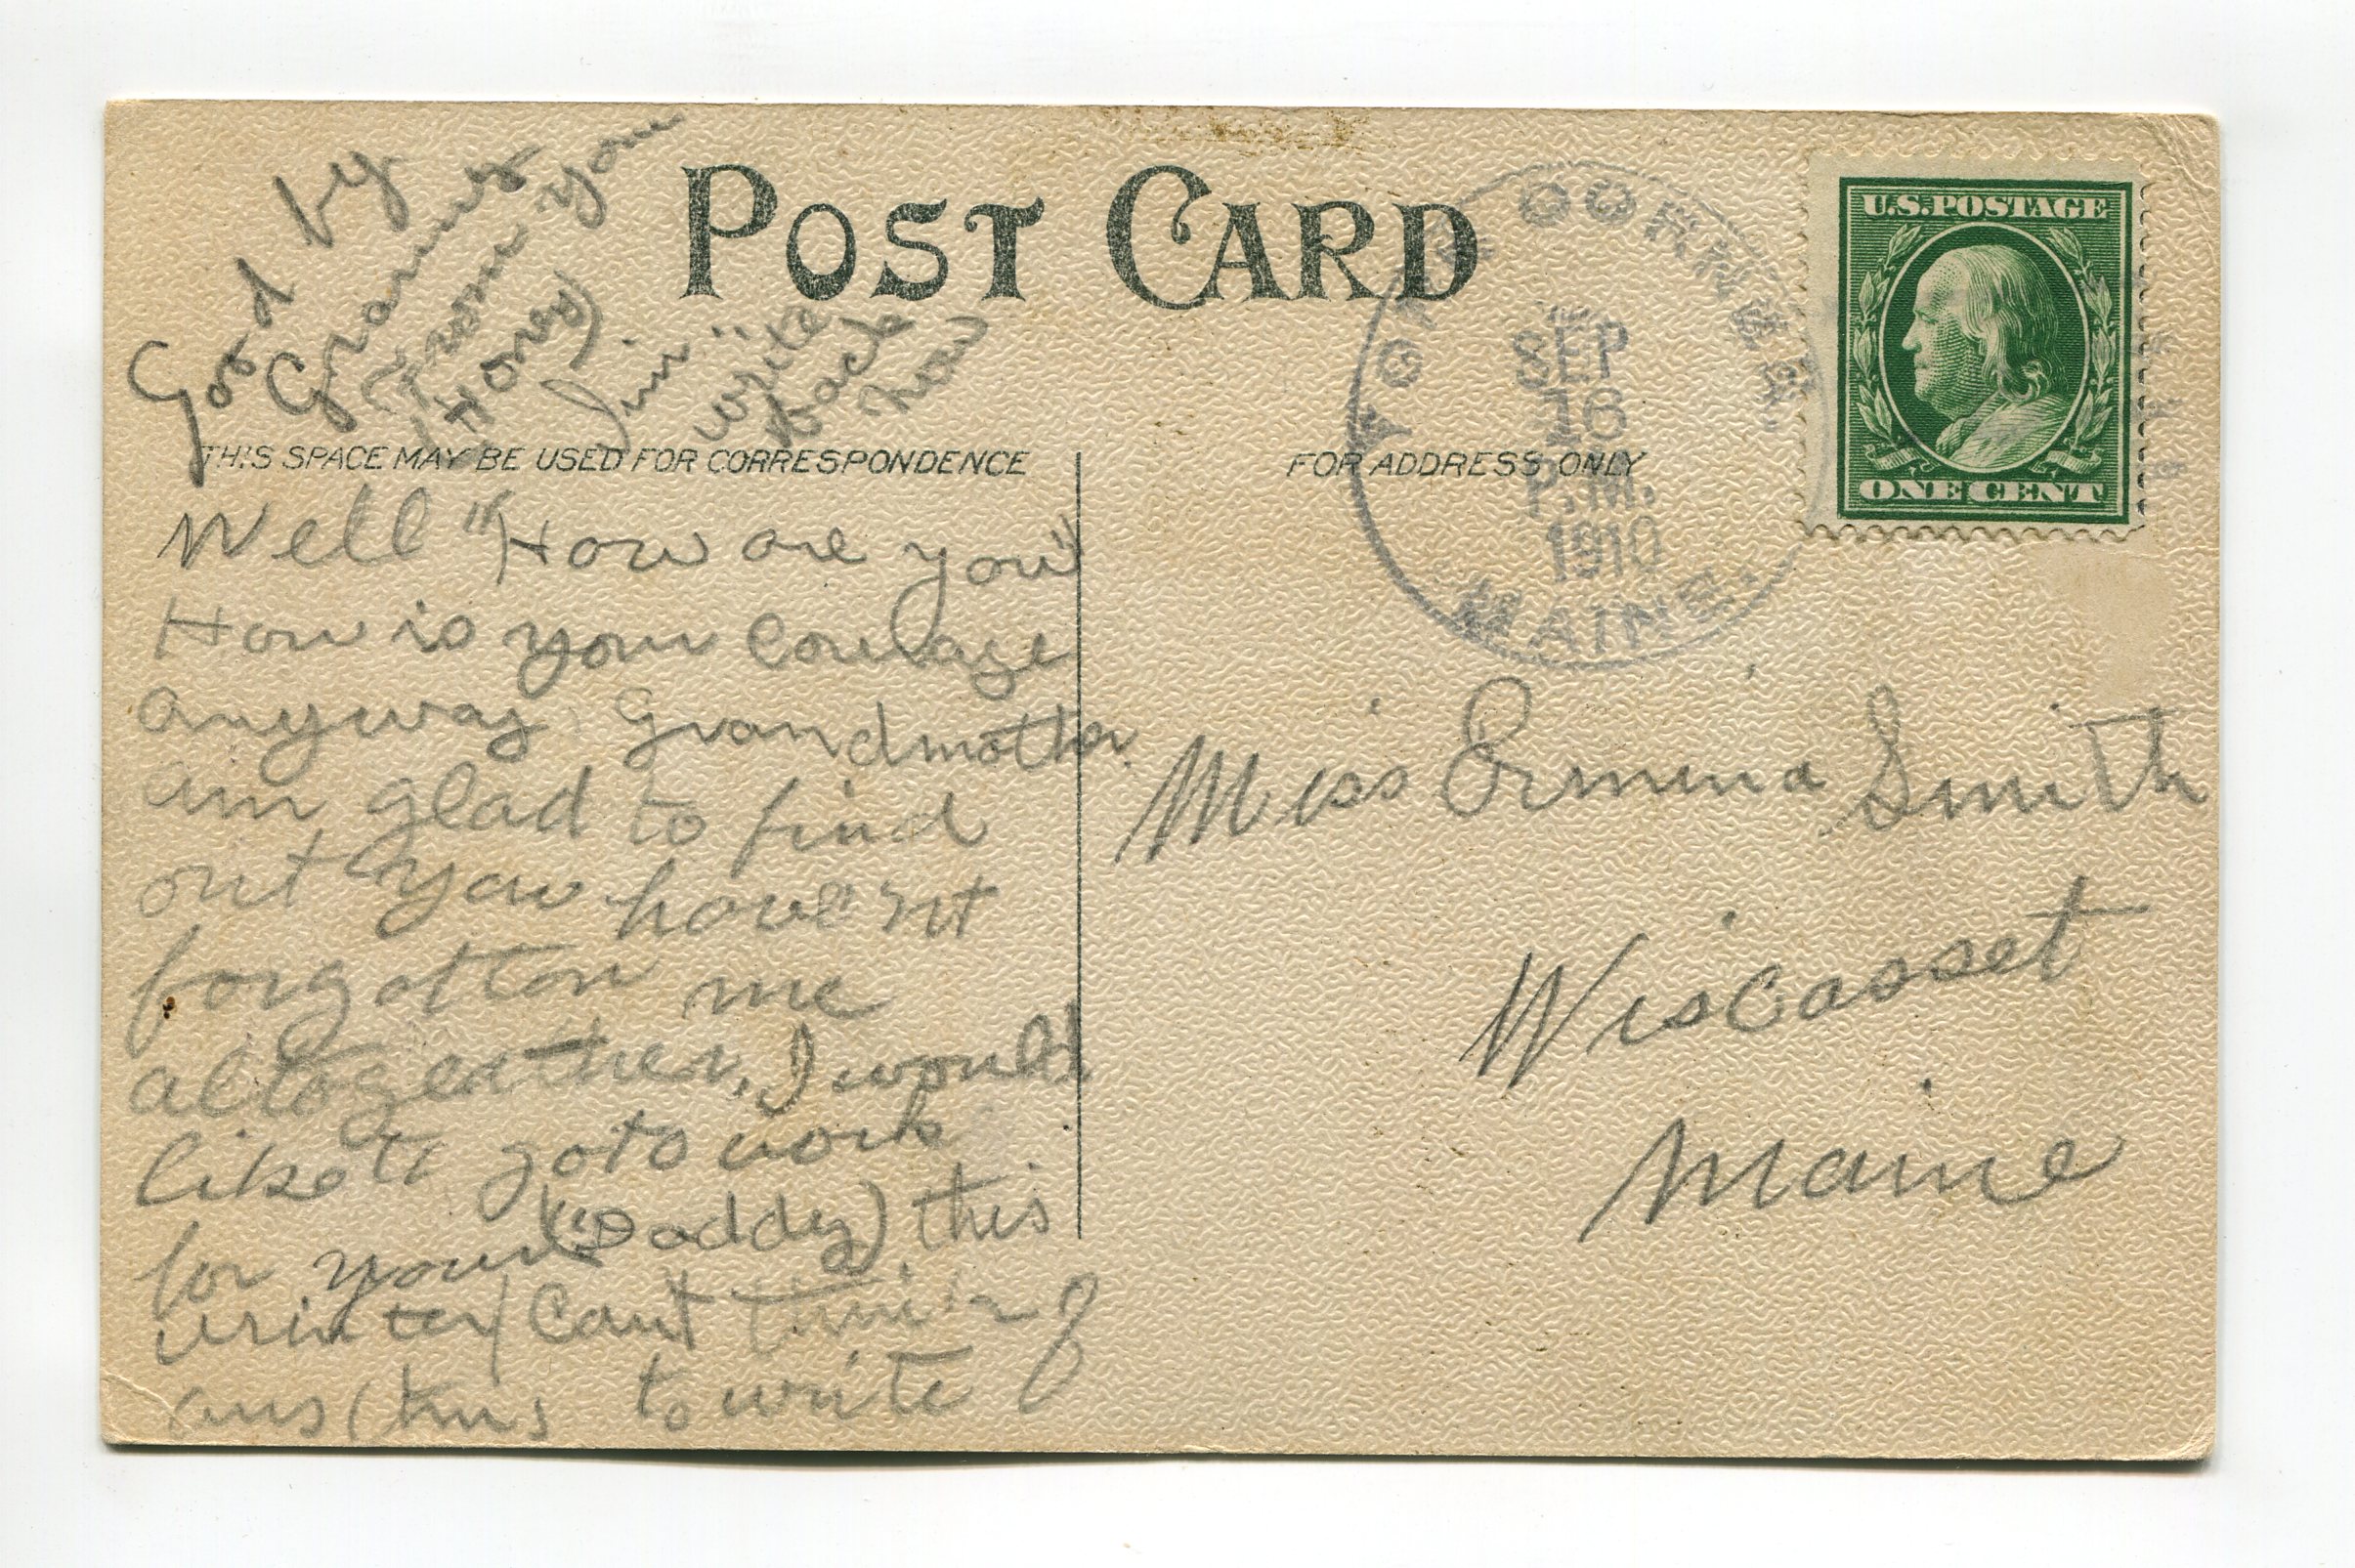 Good by
Grammer
From you
Honey
Jim"
write
back
now
POST CARD
YORK CORNER
SEP
16
P.M.
1910
MAINE
U.S. POSTAGE
ONE CENT
THIS SPACE MAY BE USED FOR CORRESPONDENCE
FOR ADDRESS ONLY
Well "How are you"
How is your courage
anyway, Grandmother.
am glad to find
out you have'nt
forgotton me
altogeather. I would
like to go to work
for your ("Daddy) this
winter Can't think of
to write
Miss Ermina Smith
Wiscasset
Maine